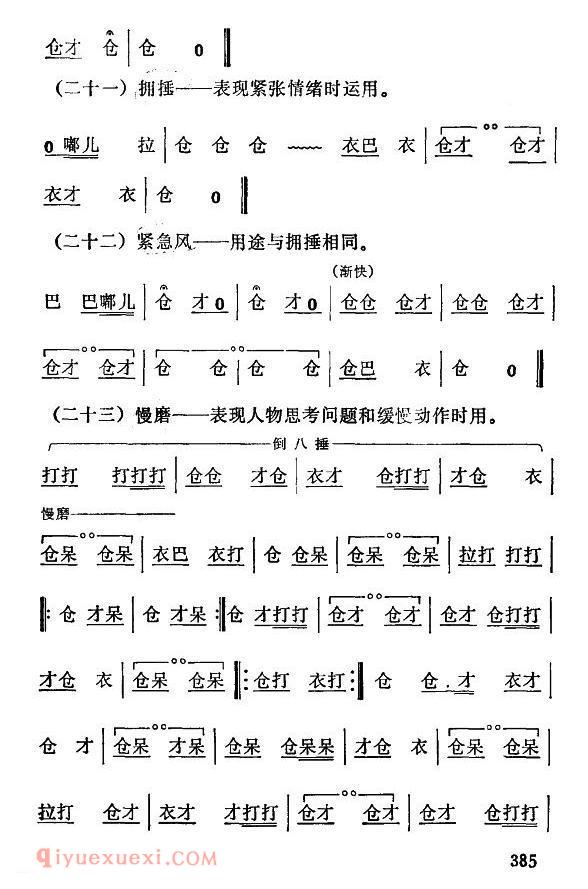 仓才 仓 | 仓 0 ‖
(二十一) 拥捶——表现紧张情绪时运用。
0嘟儿 拉 | 仓 仓 仓 ﹏﹏ 衣巴 衣 | 仓才 °° 仓才 |
衣才 衣 | 仓 0 ‖
(二十二) 紧急风——用途与拥捶相同。
(渐快)
巴 巴嘟儿 | 仓 才0 | 仓 才0 | 仓仓 仓才 | 仓仓 仓才 |
仓才 °° 仓才 | 仓 仓 °° 仓 仓 | 仓巴 衣 | 仓 0 ‖
(二十三) 慢磨——表现人物思考问题和缓慢动作时用。
倒八捶
打打 打打打 | 仓仓 才仓 | 衣才 仓打打 | 才仓 衣 |
慢磨
仓呆 °° 仓呆 | 衣巴 衣打 | 仓 仓呆 | 仓呆 °° 仓呆 | 拉打 打打 |
‖: 仓 才呆 | 仓 才呆 :‖ 仓 才打打 | 仓才 °° 仓才 | 仓才 仓打打 |
才仓 衣 | 仓呆 °° 仓呆 ‖: 仓打 衣打 :‖ 仓 仓.才 衣才 |
仓 才 | 仓呆 °° 才呆 | 仓呆 仓呆呆 | 才仓 衣 | 仓呆 °° 仓呆 |
拉打 仓才 | 衣才 才打打 | 仓才 °° 仓才 | 仓才 仓打打 |
385
qiyuexuexi.COM